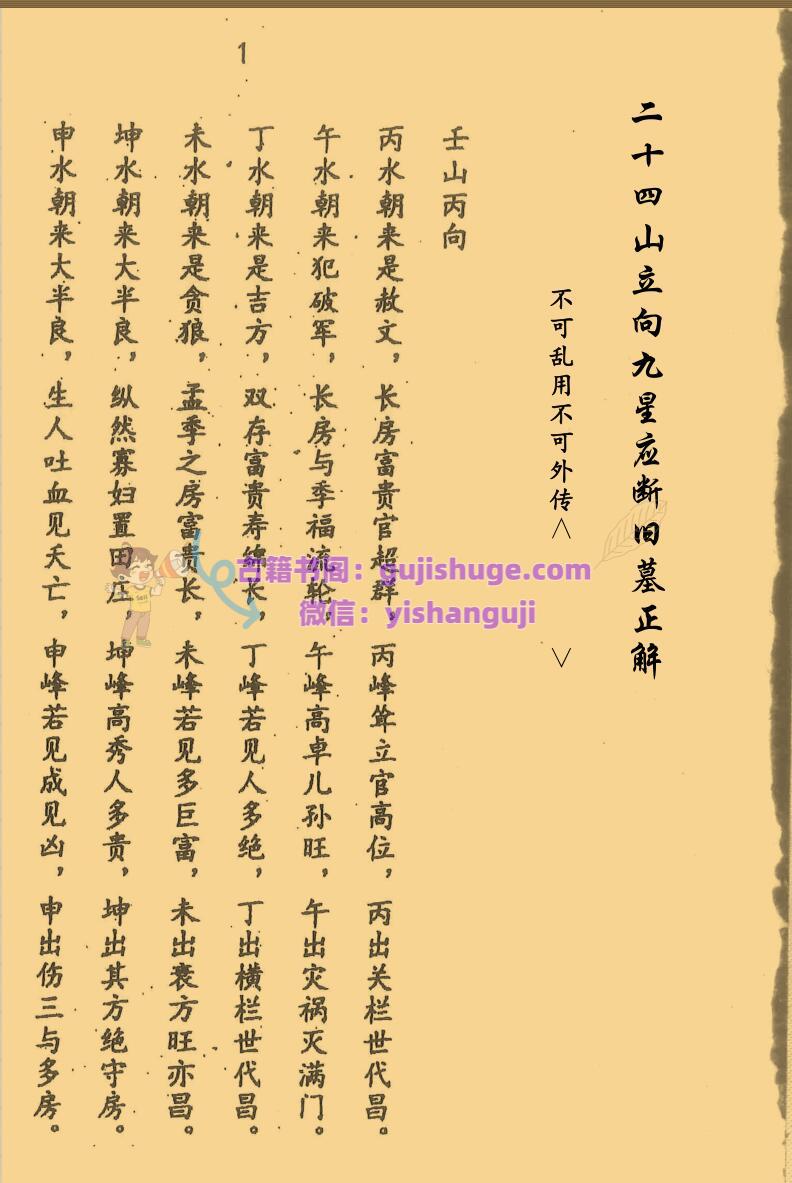 二十四山立向九星应断旧墓正解
不可乱用不可外传<    >
1
壬山丙向
丙水朝来是赦文，长房富贵官超群，丙峰耸立官高位，丙出关栏世代昌。
午水朝来犯破军，长房与季福流轮，午峰高卓儿孙旺，午出灾祸灭满门。
丁水朝来是吉方，双存富贵寿绵长，丁峰若见人多绝，丁出横栏世代昌。
未水朝来是贪狼，孟季之房富贵长，未峰若见多巨富，未出衰方旺亦昌。
坤水朝来大半良，纵然寡妇置田庄，坤峰高秀人多贵，坤出其方绝守房。
申水朝来大半良，生人吐血见夭亡，申峰若见成见凶，申出伤三与多房。
古籍书阁：gujishuge.com
微信：yishanguji